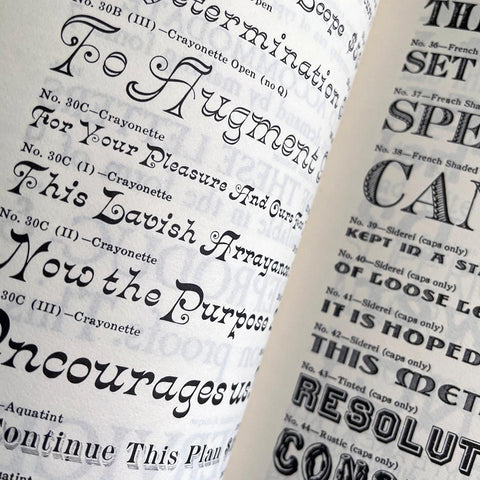 Determination
No. 30B (III)—Crayonette Open (no Q)
To Augment
No. 30C—Crayonette
For Your Pleasure And Ours
No. 30C (I)—Crayonette
This Lavish Arrayance
No. 30C (II)—Crayonette
Now the Purpose
30C (III)—Crayonette
Encourages us
—Aquatint
Continue This Plan
No. 36—French
SET
No. 37—French Shaded
SPE
No. 38—French Shaded
CAN
No. 39—Siderei (caps only)
KEPT IN A STA
No. 40—Siderei (caps only)
OF LOOSE LO
No. 41—Siderei (caps only)
IT IS HOPED
No. 42—Siderei (caps only)
THIS METH
No. 43—Tinted (caps only)
RESOLUT
No. 44—Rustic (caps only)